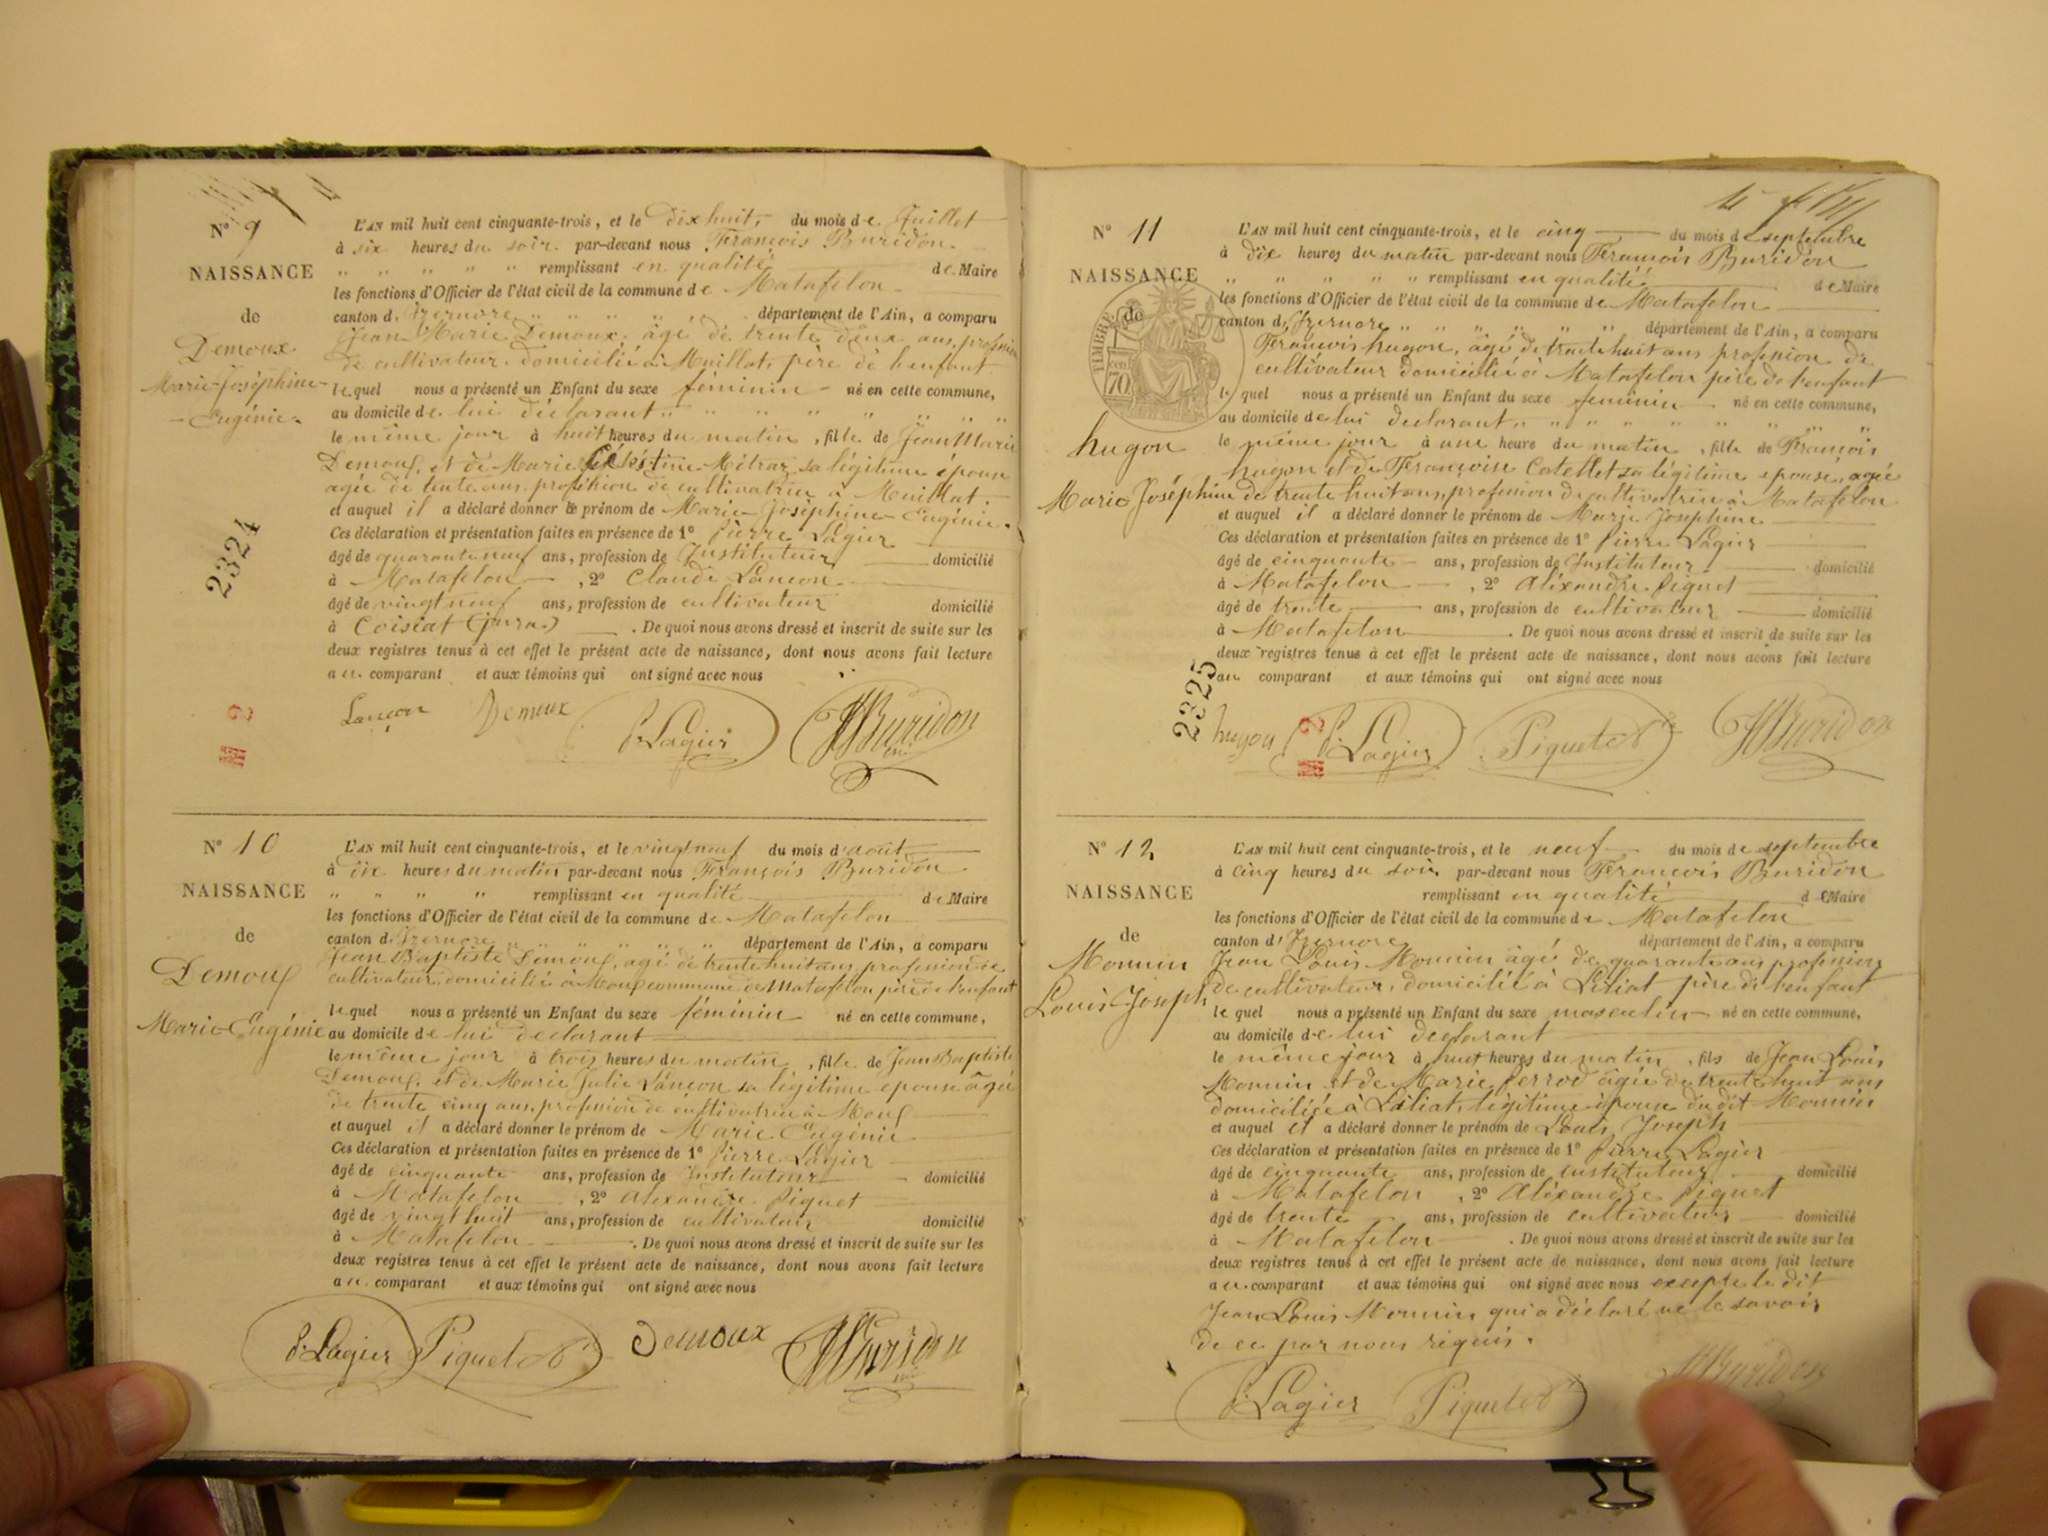 N° 9
NAISSANCE
de
Demoux
Marie-Joséphine-
-Eugénie-
2324
L'AN mil huit cent cinquante-trois, et le dix huit, du mois de Juillet
à six heures du soir par-devant nous François Buridon
" " " " " remplissant en qualité de Maire
les fonctions d'Officier de l'état civil de la commune de Matafelon
canton d'Izernore " " " " département de l'Ain, a comparu
Jean Marie Demoux, âgé de trente deux ans, profession
de cultivateur domicilié à Muillat, père de l'enfant
lequel nous a présenté un Enfant du sexe féminin né en cette commune,
au domicile de lui déclarant " " " " " " "
le même jour à huit heures du matin, fille de Jean Marie
Demoux, et de Marie Céléstine Métraz sa légitime épouse
agée de trente ans, profession de cultivatrice à Muillat.
et auquel il a déclaré donner le prénom de Marie-Joséphine-Eugénie.
Ces déclaration et présentation faites en présence de 1° Pierre Lagier
âgé de quarante neuf ans, profession de Instituteur domicilié
à Matafelon, 2° Claude Lançon
âgé de vingt neuf ans, profession de cultivateur domicilié
à Coisiat (jura.) . De quoi nous avons dressé et inscrit de suite sur les
deux registres tenus à cet effet le présent acte de naissance, dont nous avons fait lecture
au comparant et aux témoins qui ont signé avec nous
Lançon Demoux P. Lagier Buridon
N° 10
NAISSANCE
de
Demoux
Marie-Eugénie
L'AN mil huit cent cinquante-trois, et le vingt neuf du mois d'août
à dix heures du matin par-devant nous François Buridon
" " " " remplissant en qualité de Maire
les fonctions d'Officier de l'état civil de la commune de Matafelon
canton d'Izernore " " " " " département de l'Ain, a comparu
Jean Baptiste Demoux, agé de trente huit ans profession de
cultivateur, domicilié à Moux commune de Matafelon père de l'enfant
lequel nous a présenté un Enfant du sexe féminin né en cette commune,
au domicile de lui declarant
le même jour à trois heures du matin, fille de Jean Baptiste
Demoux, et de Marie Julie Lançon sa légitime epouse âgée
de trente cinq ans, profession de cultivatrice à Moux
et auquel il a déclaré donner le prénom de Marie Eugénie
Ces déclaration et présentation faites en présence de 1° Pierre Lagier
âgé de cinquante ans, profession de Instituteur domicilié
à Matafelon, 2° Alexandre Piquet
âgé de vingt huit ans, profession de cultivateur domicilié
à Matafelon . De quoi nous avons dressé et inscrit de suite sur les
deux registres tenus à cet effet le présent acte de naissance, dont nous avons fait lecture
au comparant et aux témoins qui ont signé avec nous
P. Lagier Piquet Demoux Buridon
N° 11
NAISSANCE
de
TIMBRE
70
hugon
Marie Joséphine
2325
L'AN mil huit cent cinquante-trois, et le cinq du mois de septembre
à dix heures du matin par-devant nous François Buridon
" " " " " remplissant en qualité de Maire
les fonctions d'Officier de l'état civil de la commune de Matafelon
canton d'Izernore " " " " " département de l'Ain, a comparu
François hugon, âgé de trente huit ans profession de
cultivateur domicilié à Matafelon père de l'enfant
lequel nous a présenté un Enfant du sexe féminin né en cette commune,
au domicile de lui declarant " " " " " " "
le même jour à une heure du matin, fille de François
hugon et de Françoise Catellet sa légitime epouse, agée
de trente huit ans, profession de cultivatrice à Matafelon
et auquel il a déclaré donner le prénom de Marie Josephine
Ces déclaration et présentation faites en présence de 1° Pierre Lagier
âgé de cinquante ans, profession de Instituteur domicilié
à Matafelon, 2° Aléxandre Piquet
âgé de trente ans, profession de cultivateur domicilié
à Matafelon . De quoi nous avons dressé et inscrit de suite sur les
deux registres tenus à cet effet le présent acte de naissance, dont nous avons fait lecture
au comparant et aux témoins qui ont signé avec nous
hugon P. Lagier Piquet Buridon
N° 12
NAISSANCE
de
Monnin
Louis Joseph
L'AN mil huit cent cinquante-trois, et le neuf du mois de septembre
à cinq heures du soir par-devant nous François Buridon
remplissant en qualité de Maire
les fonctions d'Officier de l'état civil de la commune de Matafelon
canton d'Izernore département de l'Ain, a comparu
Jean Louis Monnin âgé de quarante ans profession
de cultivateur, domicilié à Léliat père de l'enfant
lequel nous a présenté un Enfant du sexe masculin né en cette commune,
au domicile de lui declarant
le même jour à huit heures du matin, fils de Jean Louis
Monnin et de Marie Perrod âgée de trente huit ans
domiciliée à Léliat, légitime épouse du dit Monnin
et auquel il a déclaré donner le prénom de Louis Joseph
Ces déclaration et présentation faites en présence de 1° Pierre Lagier
âgé de cinquante ans, profession de instituteur domicilié
à Matafelon, 2° Aléxandre Piquet
âgé de trente ans, profession de cultivateur domicilié
à Matafelon . De quoi nous avons dressé et inscrit de suite sur les
deux registres tenus à cet effet le présent acte de naissance, dont nous avons fait lecture
au comparant et aux témoins qui ont signé avec nous excepté le dit
Jean Louis Monnin qui a déclaré ne le savoir
de ce par nous réquis.
P. Lagier Piquet Buridon